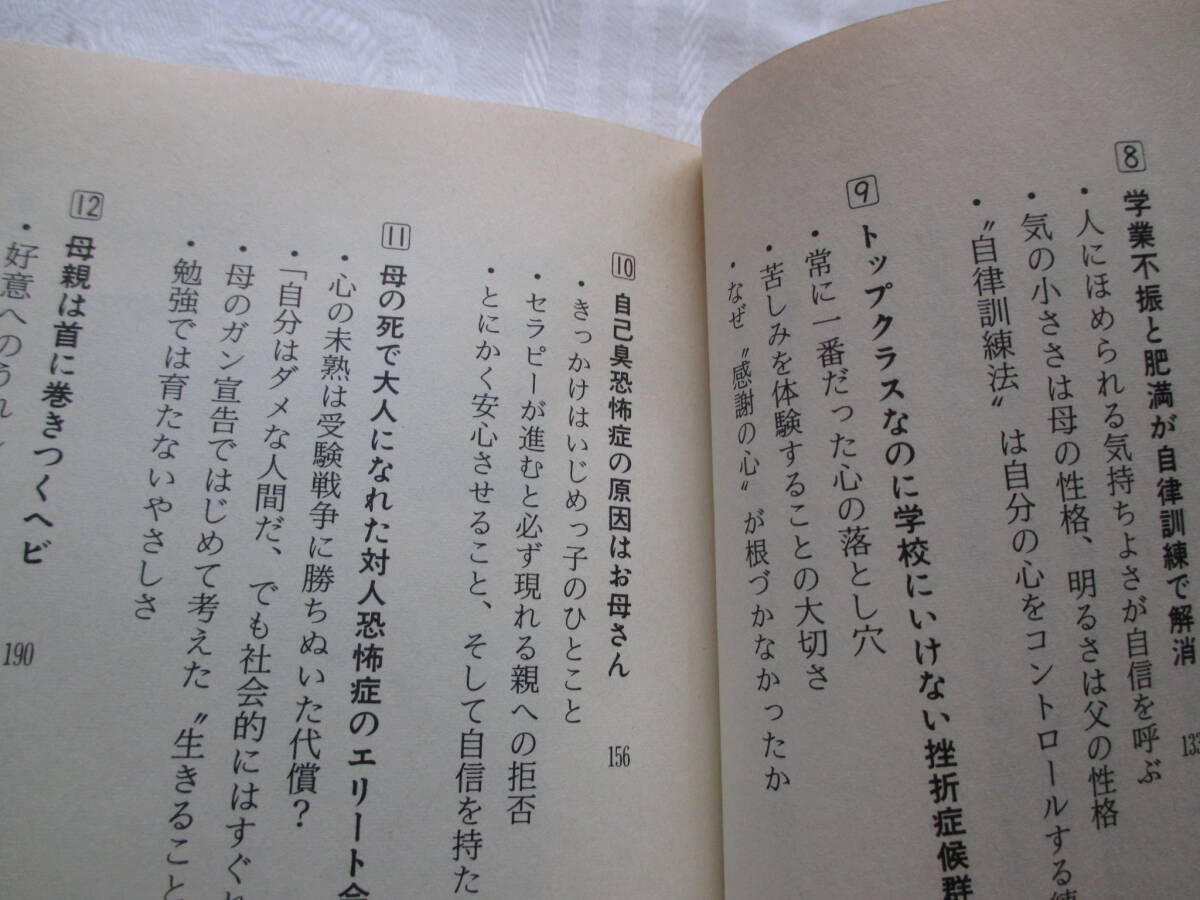 8 学業不振と肥満が自律訓練で解消
133
・人にほめられる気持ちよさが自信を呼ぶ
・気の小ささは母の性格、明るさは父の性格
・〝自律訓練法〟は自分の心をコントロールする
9 トップクラスなのに学校にいけない挫折症候群
・常に一番だった心の落とし穴
・苦しみを体験することの大切さ
・なぜ〝感謝の心〟が根づかなかったか
10 自己臭恐怖症の原因はお母さん
156
・きっかけはいじめっ子のひとこと
・セラピーが進むと必ず現れる親への拒否
・とにかく安心させること、そして自信を持た
11 母の死で大人になれた対人恐怖症のエリート
・心の未熟は受験戦争に勝ちぬいた代償?
・「自分はダメな人間だ、でも社会的にはすぐれ
・母のガン宣告ではじめて考えた〝生きること
・勉強では育たないやさしさ
12 母親は首に巻きつくヘビ
190
・好意へのうれ